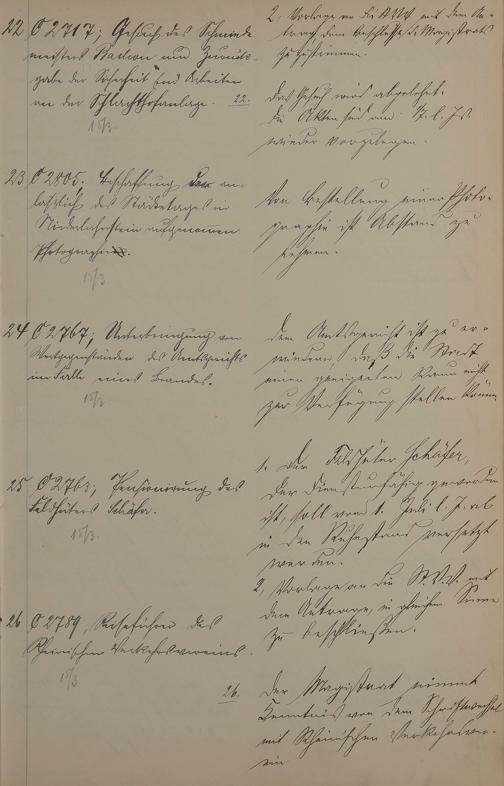 22 C 2717; Gesuch des Schmiede
meisters Backon um Zurück-
gabe der Sicherheit und Arbeiten
an der Schlachthofanlage.
15/3.
2, Vorlage an die St.V.V. mit dem An-
trag dem Beschlusse des Magistrats
zuzustimmen.
22.
Das Gesuch wird abgelehnt.
Die Akten sind am l. Js.
wieder vorzulegen.
23 C 2805; Beschaffung der an-
läßlich des Städtetages in
Niederlahnstein aufgenommenen
Photographien.
15/3
Von Bestellung einer Photo-
graphie ist Abstand zu
nehmen.
24 C 2767; Unterbringung von
Wertgegenständen des Amtsgerichts
im Falle eines Brandes.
15/3
Dem Amtsgericht ist zu er-
widern, daß die Stadt
einen geeigneten Raum nicht
zur Verfügung stellen könne
25 C 2763; Pensionierung des
Feldhüters Schäfer.
15/3.
1. Der Feldhüter Schäfer,
der dienstunfähig geworden
ist, soll vom 1. Juli l. J. ab
in den Ruhestand versetzt
werden.
2, Vorlage an die St.V.V. mit
dem Antrage, in gleichem Sinne
zu beschließen.
26 C 2789, Reiseführer des
Rheinischen Verkehrsvereins.
15/3
26. Der Magistrat nimmt
Kenntnis von dem Schriftwechsel
mit Rheinischen Verkehrsver-
ein